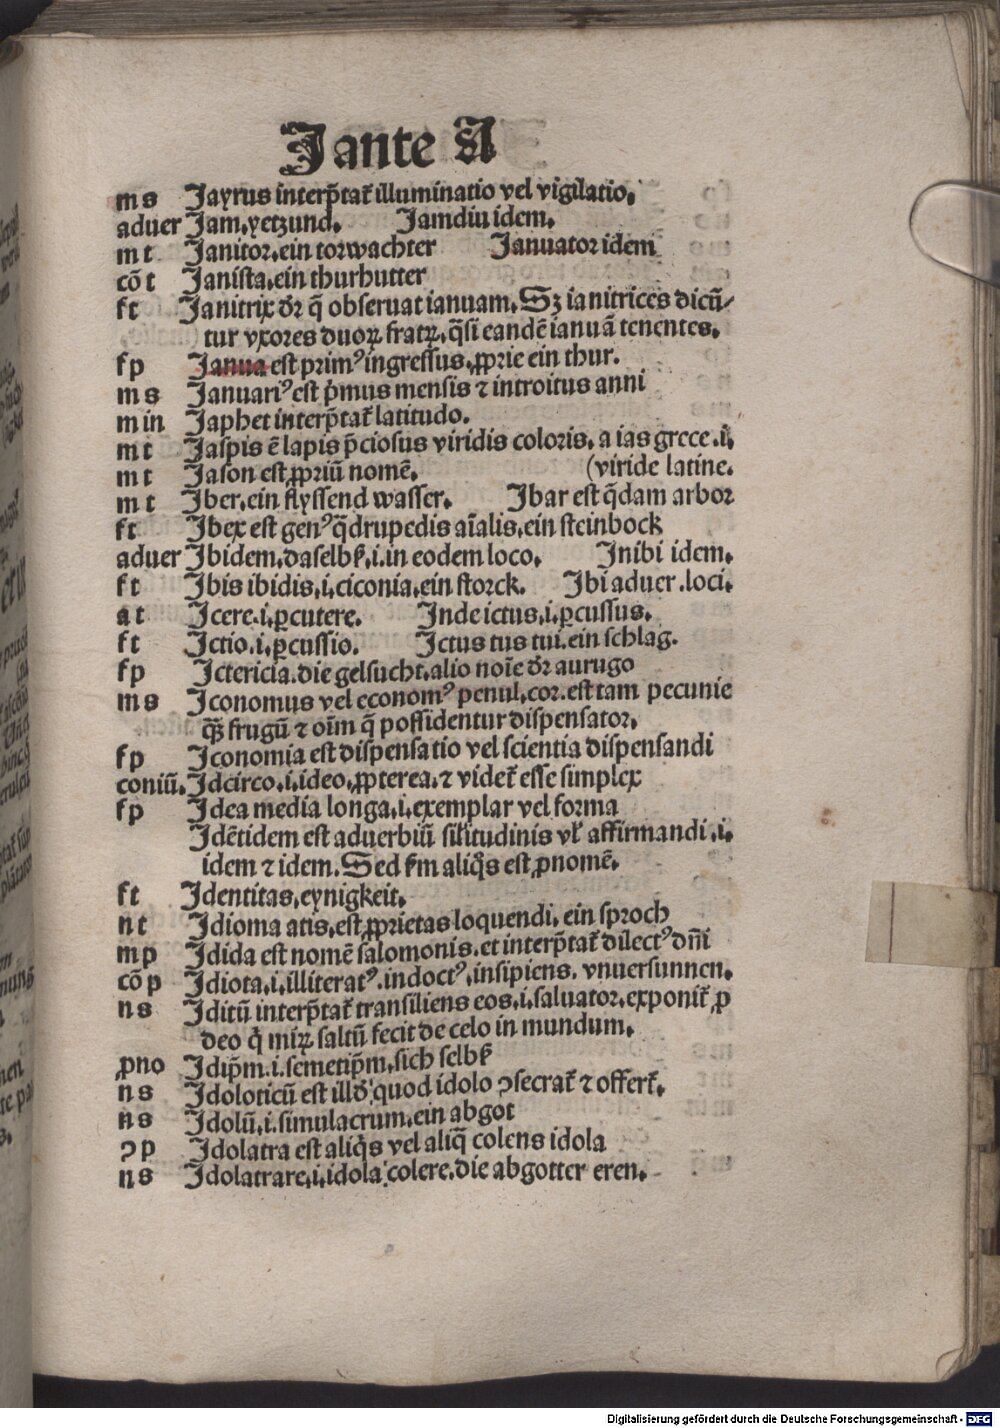 I ante A
m s Jayrus interp̄tat᷒ illuminatio vel vigilatio.
aduer Jam.yetzund. Jamdiu idem.
m t Janitor.ein torwachter Januator idem
cō t Janista.ein thurhutter
f t Janitrix dr̄ q̄ obseruat ianuam.Sꝫ ianitrices dicū/
tur vxores duoꝝ fratꝝ.q̄si eandē ianuā tenentes.
f p Janua est primꝰ ingressus.ꝓprie ein thur.
m s Januariꝰ est p̄mus mensis ⁊ introitus anni
m in Japhet interp̄tat᷒ latitudo.
m t Jaspis ē lapis p̄ciosus viridis coloris. a ias grece .i.
m t Jason est ꝓpriū nomē. (viride latine.
m t Jber.ein flyssend wasser. Jbar est q̄dam arbor
f t Jbex est genꝰ q̄drupedis aīalis.ein steinbock
aduer Jbidem.daselbst.i.in eodem loco. Jnibi idem.
f t Jbis ibidis.i.ciconia.ein storck. Jbi aduer.loci.
a t Jcere.i.ꝑcutere. Jnde ictus.i.ꝑcussus.
f t Jctio.i.ꝑcussio. Jctus tus tui.ein schlag.
f p Jctericia.die gelsucht.alio noīe dr̄ aurugo
m s Jconomus vel economꝰ penul.cor.est tam pecunie
q̄ꝫ frugū ⁊ oīm q̄ possidentur dispensator.
f p Jconomia est dispensatio vel scientia dispensandi
coniū. Jdcirco.i.ideo.ꝓpterea.⁊ videt᷒ esse simplex
f p Jdea media longa.i.exemplar vel forma
Jdētidem est aduerbiū sil̄itudinis vl̄ affirmandi .i.
idem ⁊ idem. Sed s̄m aliq̄s est ꝓnomē.
f t Jdentitas.eynigkeit.
n t Jdioma atis.est ꝓprietas loquendi.ein sproch
m p Jdida est nomē salomonis.et interp̄tat᷒ dilectꝰ dn̄i
cō p Jdiota.i.illiteratꝰ.indoctꝰ.insipiens. vnuersunnen.
n s Jditū interp̄tat᷒ transiliens eos.i.saluator.exponit᷒ ꝓ
deo q̇ miꝝ saltū fecit de celo in mundum.
ꝓno Jdip̄m.i.semetip̄m.sich selbst
n s Jdoloticū est illd̄ quod idolo ꝯsecrat᷒ ⁊ offert᷒.
n s Jdolū.i.simulacrum.ein abgot
ꝯ p Jdolatra est aliq̇s vel aliq̄ colens idola
n s Jdolatrare.i.idola colere.die abgotter eren.
Digitalisierung gefördert durch die Deutsche Forschungsgemeinschaft - DFG